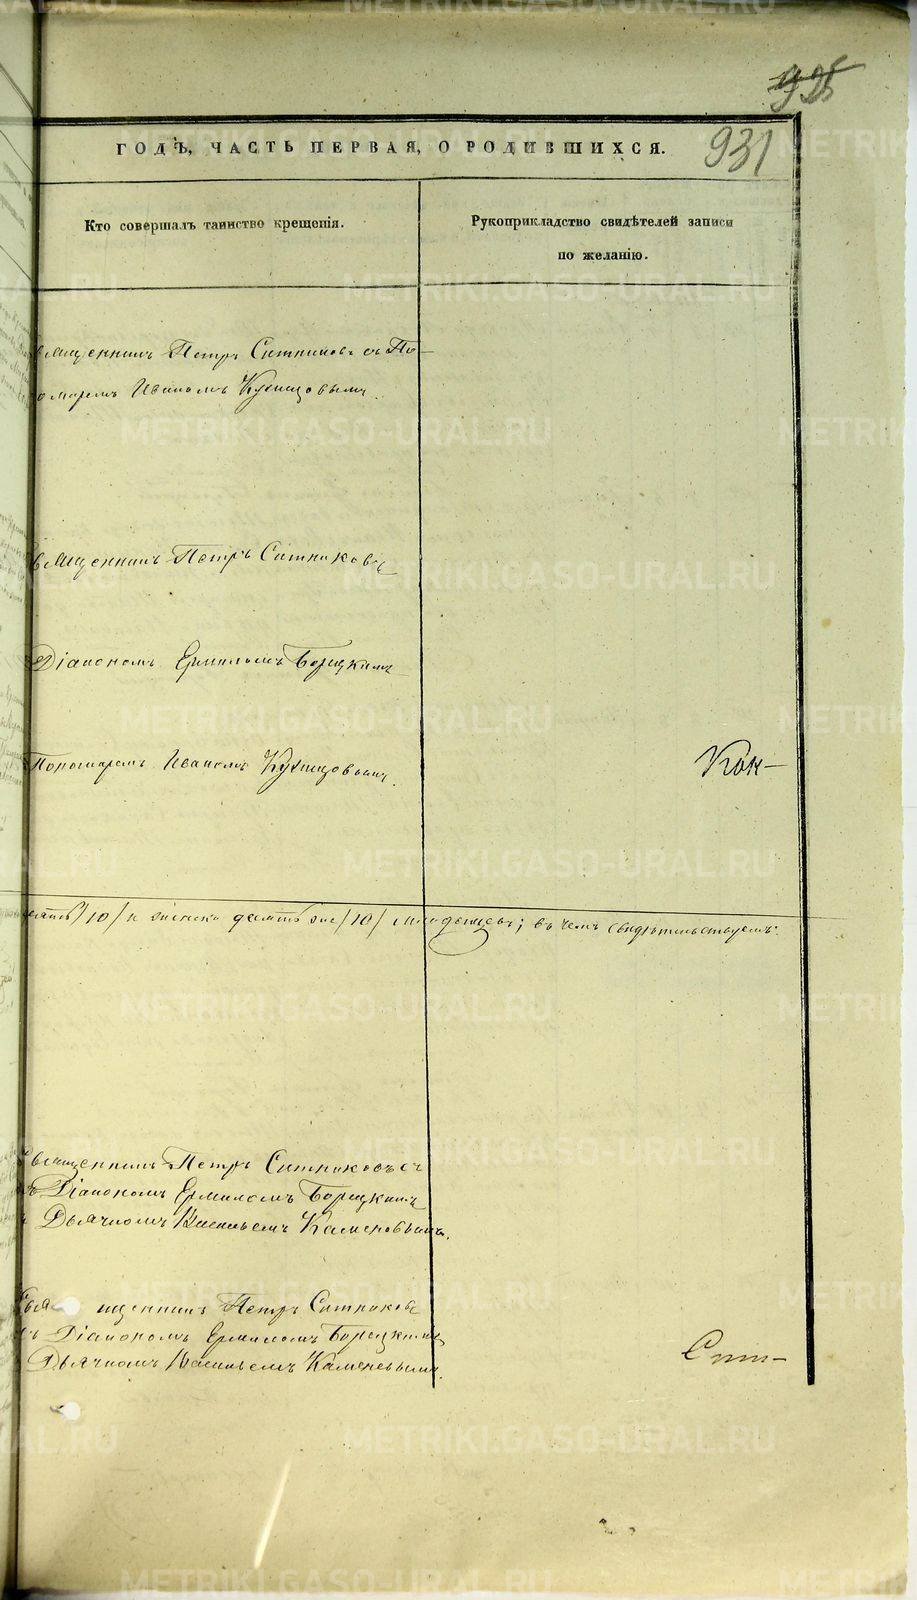 925
931
ГОДЪ, ЧАСТЬ ПЕРВАЯ, О РОДИВШИХСЯ.
Кто совершалъ таинство крещенія.
Рукоприкладство свидѣтелей записи
по желанію.
Священникъ Петръ Ситниковъ съ По-
номаремъ Иваномъ
Священникъ Петръ Ситниковъ
Діакономъ Ермиломъ Борецкимъ
Пономаремъ Иваномъ
Кок-
/10/ и женска десять /10/ младенцевъ; въ чемъ свидѣтельствуемъ:
Священникъ Петръ Ситниковъ с
ъ Діакономъ Ермиломъ Борецкимъ
и Дьячкомъ Васильемъ Каменевымъ.
Священникъ Петръ Ситниковъ
съ Діакономъ Ермиломъ Борецкимъ
и Дьячкомъ Васильемъ Каменевымъ.
Сит-
METRIKI.GASO-URAL.RU